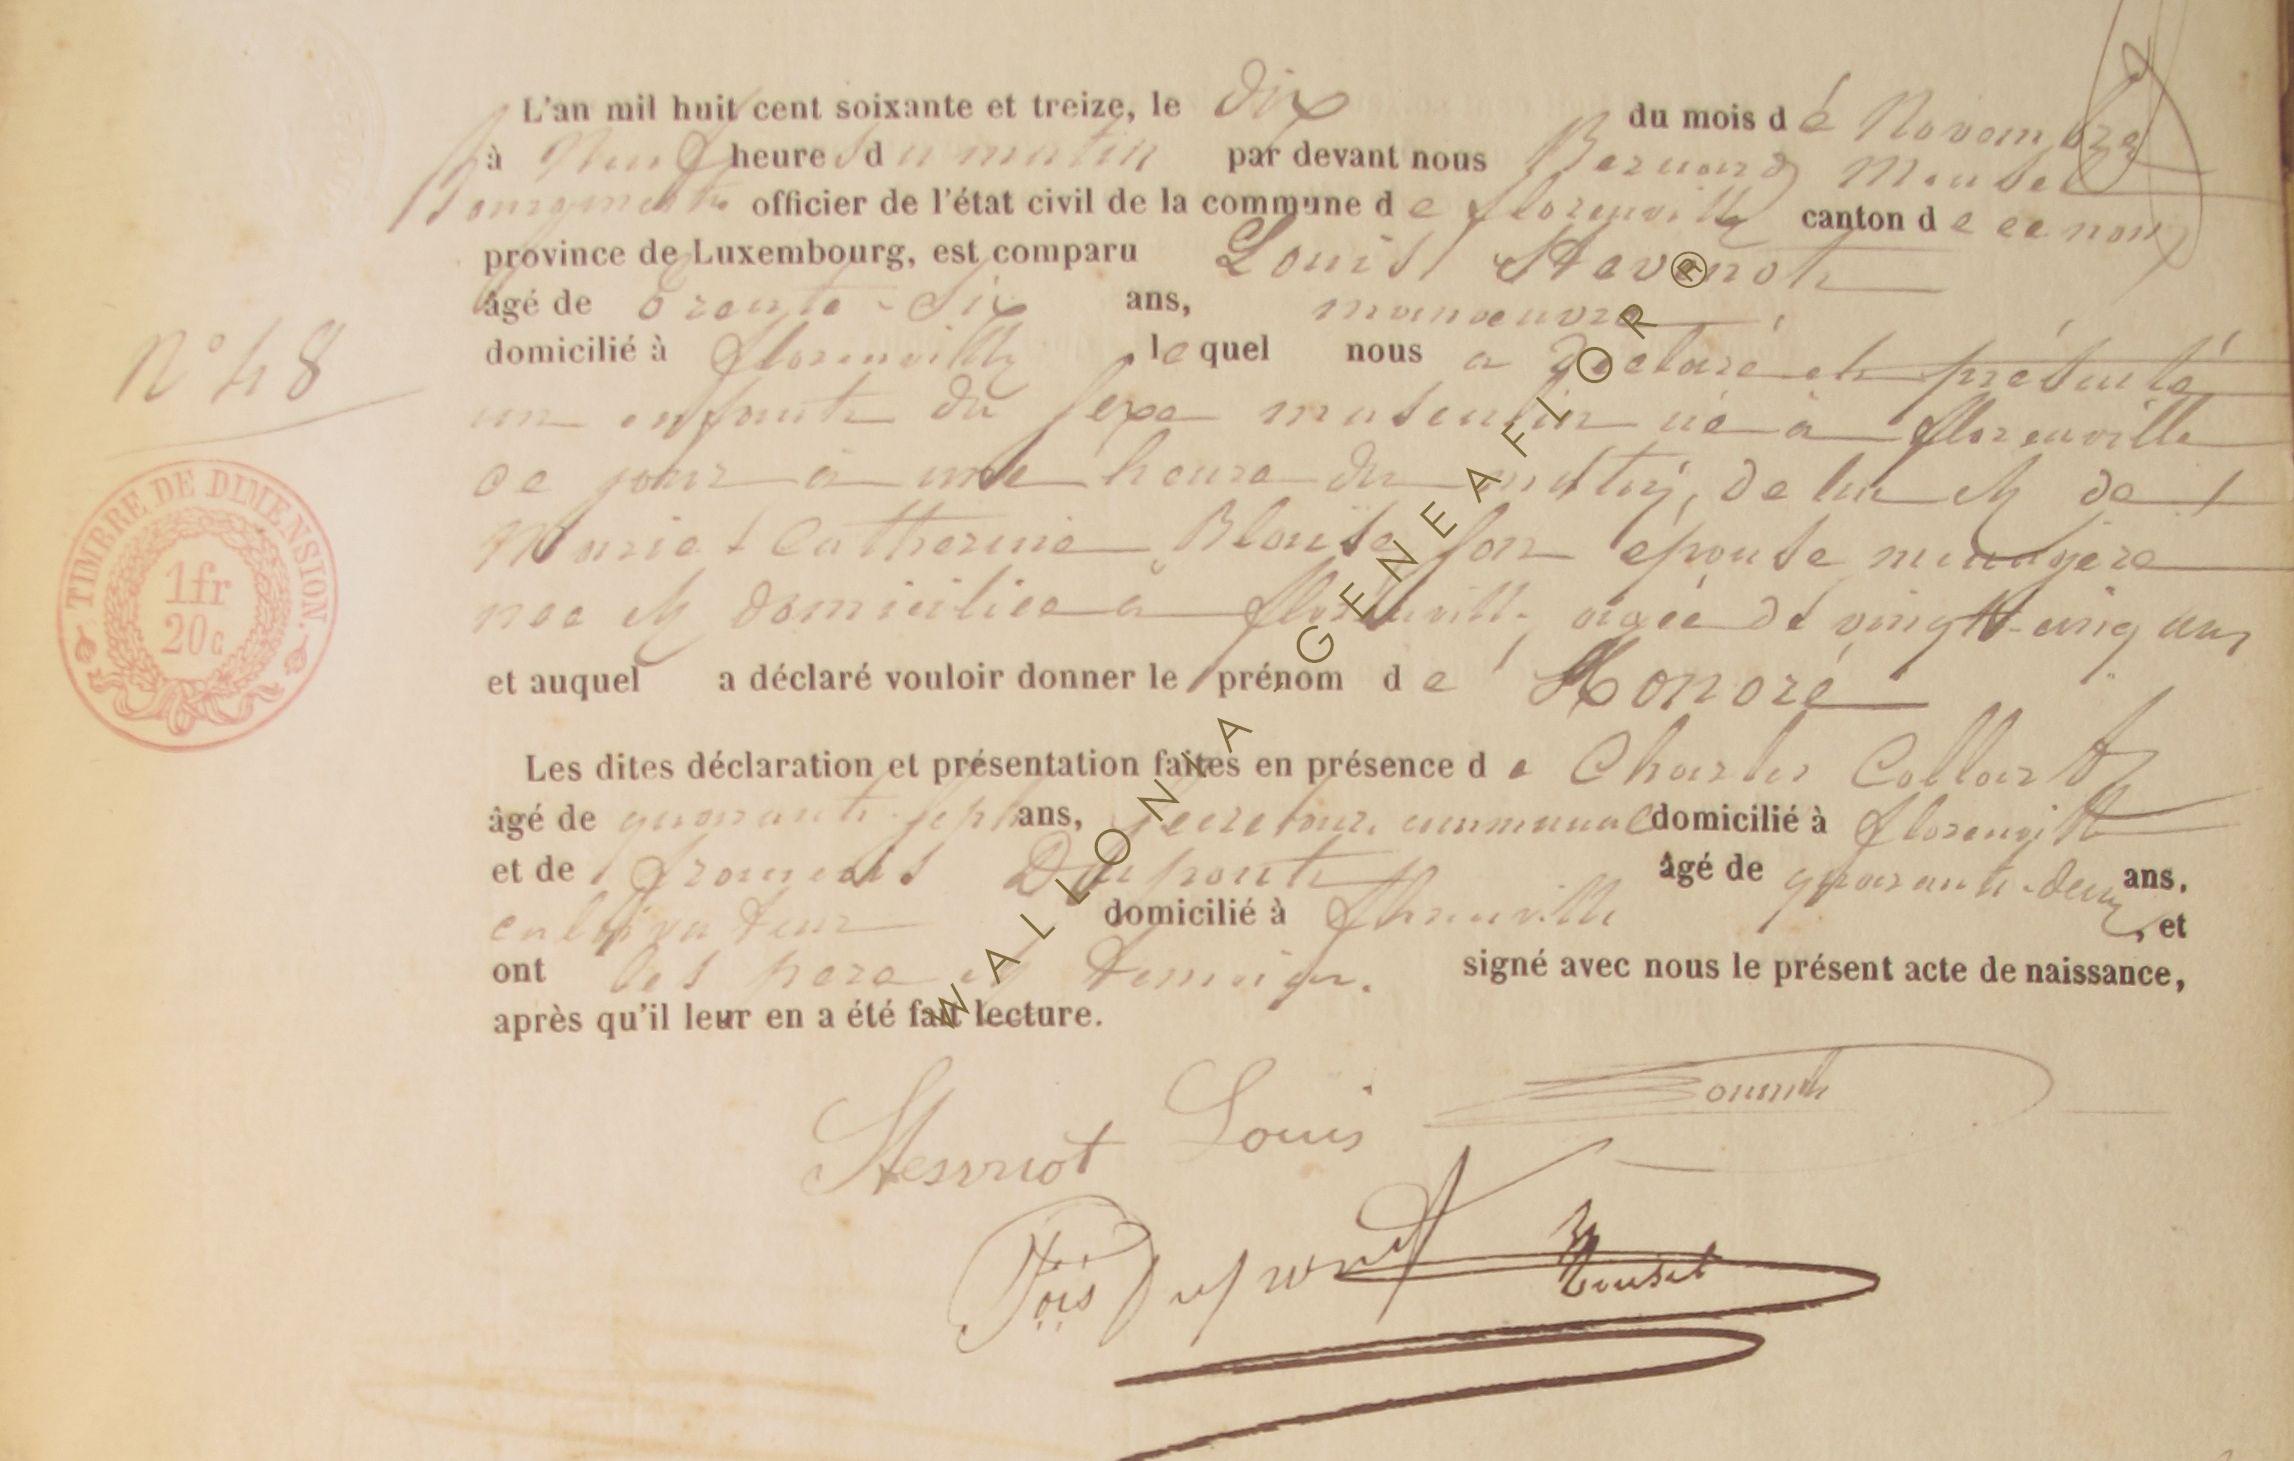 L'an mil huit cent soixante et treize, le dix du mois de Novembre
à Neuf heures du matin par devant nous Bernard Mousel
Bourgmestre officier de l'état civil de la commune de florenville canton de ce nom
province de Luxembourg, est comparu Louis Stevenot
âgé de trente-six ans, manoeuvre
domicilié à florenville lequel nous a déclaré et présenté
un enfant du sexe masculin né à florenville
ce jour à une heure du matin, de lui et de
Marie Catherine Blaise son épouse ménagère
née et domiciliée à florenville, agée de vingt-cinq ans
et auquel a déclaré vouloir donner le prénom de Honoré
Les dites déclaration et présentation faites en présence de Charles Collart
âgé de quarante-sept ans, secrétaire communal domicilié à florenville
et de françois Dupont âgé de quarante-deux ans,
cultivateur domicilié à florenville, et
ont les père et témoins. signé avec nous le présent acte de naissance,
après qu'il leur en a été fait lecture.
N° 48
TIMBRE DE DIMENSION.
1fr
20c
Louis
Fois Dupont
Mousel
WALLONIA, GENEAFLOR ®